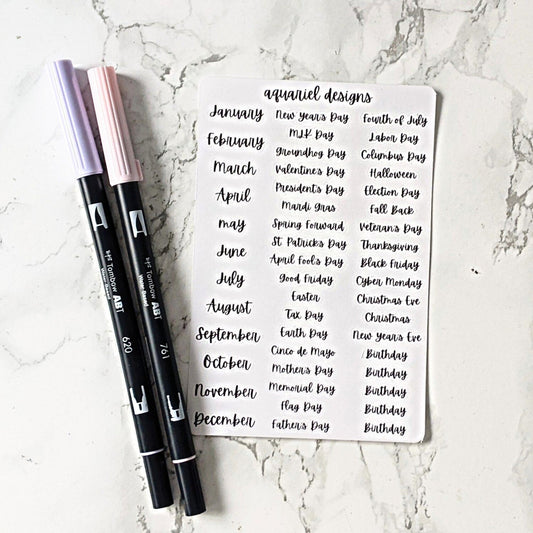 aquariel designs
January
February
March
April
may
June
July
August
September
October
November
December
New Year's Day
MLK Day
Groundhog Day
Valentine's Day
President's Day
Mardi Gras
Spring Forward
St. Patrick's Day
April Fool's Day
Good Friday
Easter
Tax Day
Earth Day
Cinco de Mayo
Mother's Day
Memorial Day
Flag Day
Father's Day
Fourth of July
Labor Day
Columbus Day
Halloween
Election Day
Fall Back
Veteran's Day
Thanksgiving
Black Friday
Cyber Monday
Christmas Eve
Christmas
New Year's Eve
Birthday
Birthday
Birthday
Birthday
Birthday
Tombow ABT
620
Tombow ABT
761